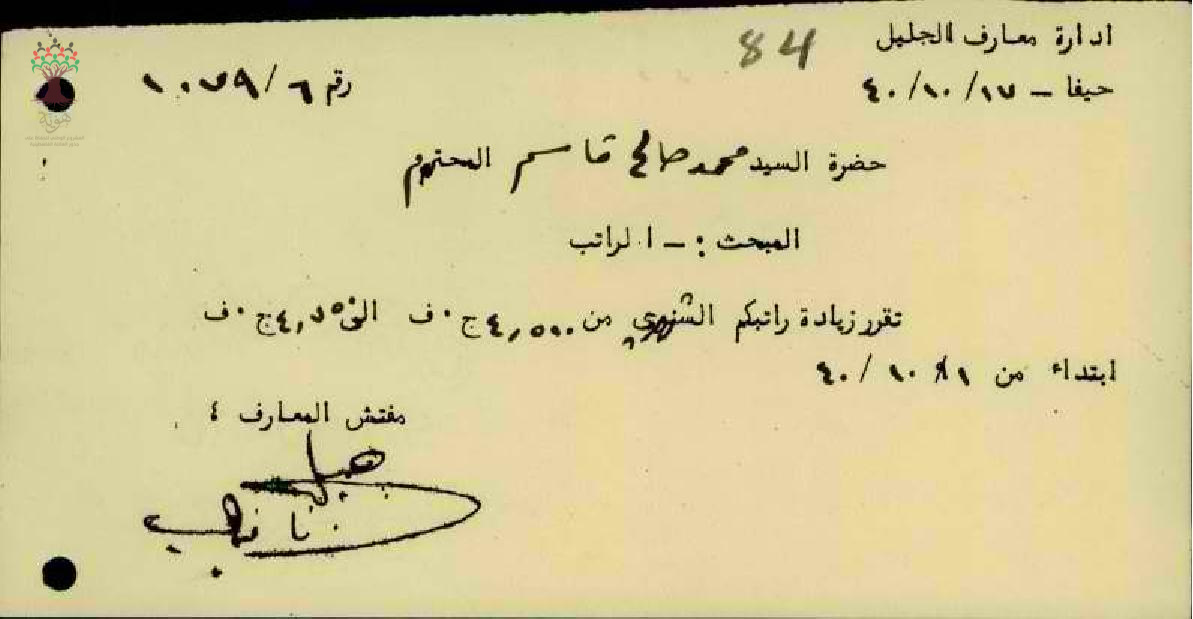 ادارة معارف الجليل
84
حيفا – ١٧/ ١٠/ ٤٠
رقم ٦ /١٠٧٩
حضرة السيد محمد صالح قاسم المحترم
المبحث : – الراتب
تقرر زيادة راتبكم الشهري من ٤,٥٠٠ ج٠ف الى ٤,٧٥٠ ج٠ف
ابتداء من ١/ ١٠ / ٤٠
مفتش المعارف ؛